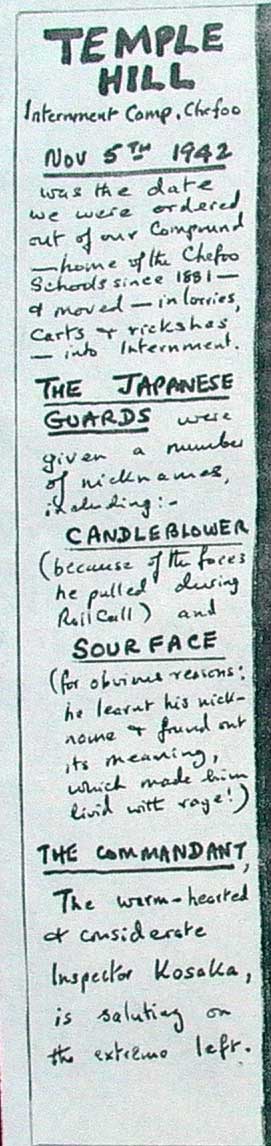 TEMPLE
HILL
Internment Camp, Chefoo
Nov 5TH 1942
was the date
we were ordered
out of our Compound
— home of the Chefoo
Schools since 1881 —
& moved — in lorries,
Carts & rickshas
— into Internment.
THE JAPANESE
GUARDS were
given a number
of nicknames,
including:-
CANDLEBLOWER
(because of the faces
he pulled during
Roll Call) and
SOUR FACE
(for obvious reasons:
he learnt his nick-
name & found out
its meaning,
which made him
livid with rage!)
THE COMMANDANT,
The warm-hearted
& considerate
Inspector Kosaka,
is saluting on
the extreme left.